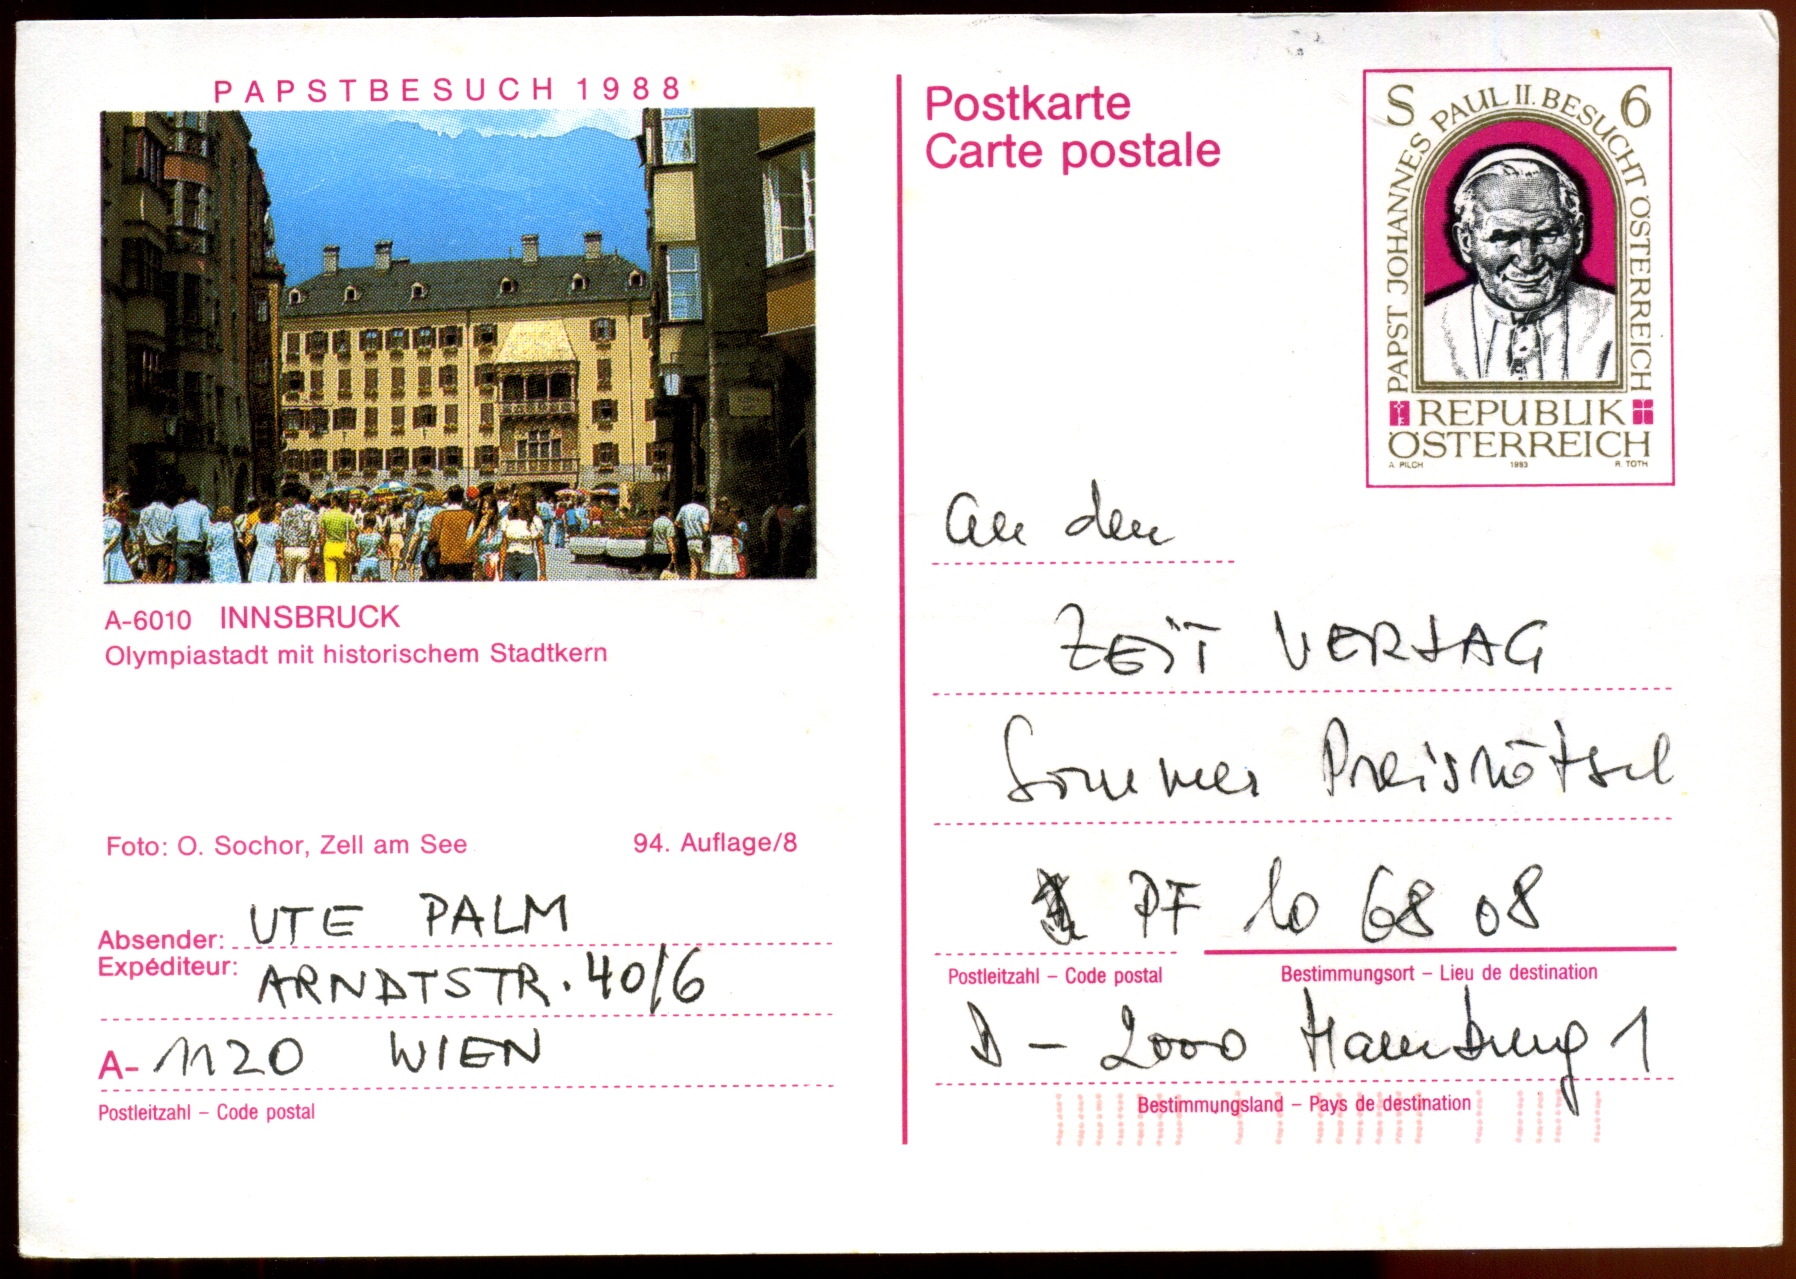 PAPSTBESUCH 1988
A-6010 INNSBRUCK
Olympiastadt mit historischem Stadtkern
Foto: O. Sochor, Zell am See 94. Auflage/8
Absender: UTE PALM
Expéditeur: ARNDTSTR. 40/6
A- 1120 WIEN
Postleitzahl – Code postal
Postkarte
Carte postale
S 6
PAPST JOHANNES PAUL II. BESUCHT ÖSTERREICH
REPUBLIK
ÖSTERREICH
A. PILCH 1983 R. TOTH
An den
ZEIT VERLAG
Sommer Preisrätsel
PF 10 68 08
Postleitzahl – Code postal Bestimmungsort – Lieu de destination
D - 2000 Hamburg 1
Bestimmungsland – Pays de destination